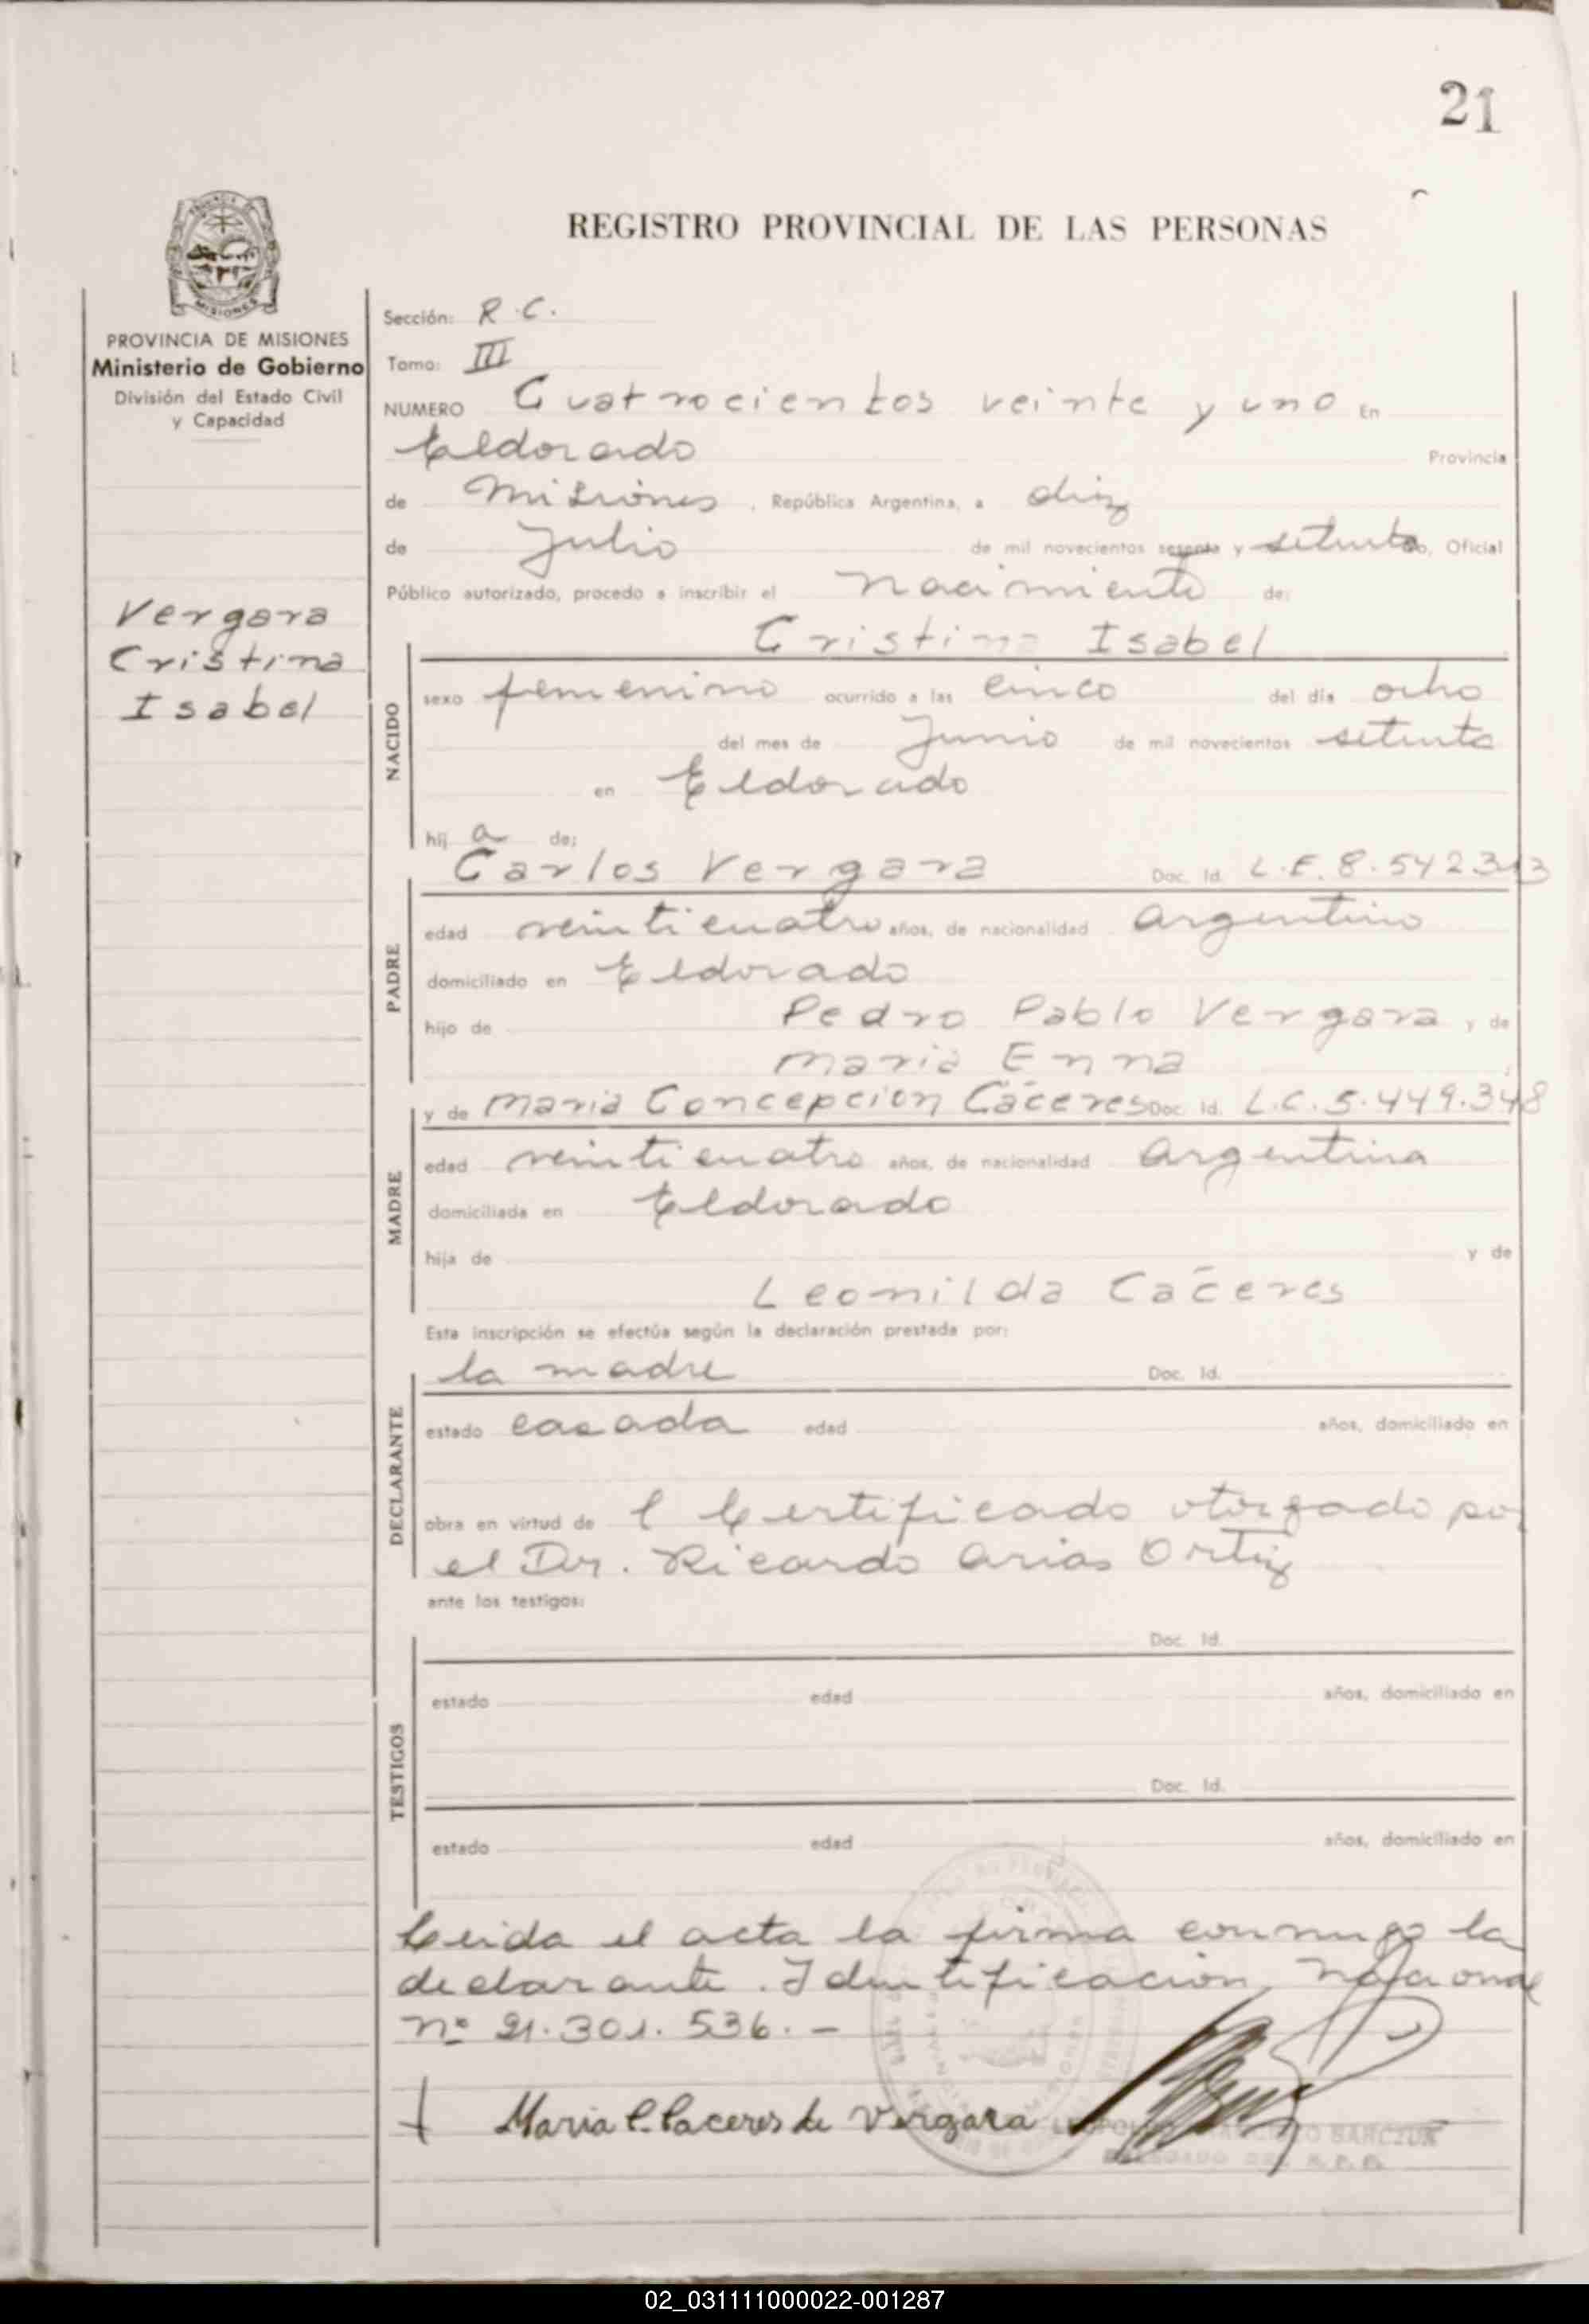 21
REGISTRO PROVINCIAL DE LAS PERSONAS
PROVINCIA DE MISIONES
Ministerio de Gobierno
División del Estado Civil
y Capacidad
Vergara
Cristina
Isabel
Sección: R.C.
Tomo: III
NUMERO Cuatrocientos veinte y uno En
Eldorado Provincia
de Misiones, República Argentina, a diez
de Julio de mil novecientos sesenta y setenta, Oficial
Público autorizado, procedo a inscribir el nacimiento de:
Cristina Isabel
NACIDO
sexo femenino ocurrido a las cinco del día ocho
del mes de Junio de mil novecientos setenta
en Eldorado
hij a de:
Carlos Vergara Doc. Id. L.E. 8.542313
PADRE
edad veinticuatro años, de nacionalidad argentino
domiciliado en Eldorado
hijo de Pedro Pablo Vergara y de
Maria Enna
y de Maria Concepcion Cáceres Doc. Id. L.C. 5.449.348
MADRE
edad veinticuatro años, de nacionalidad Argentina
domiciliada en Eldorado
hija de y de
Leonilda Cáceres
Esta inscripción se efectúa según la declaración prestada por:
la madre Doc. Id.
DECLARANTE
estado casada edad años, domiciliado en
obra en virtud de l Certificado otorgado por
el Dr. Ricardo Arias Ortiz
ante los testigos:
Doc. Id.
TESTIGOS
estado edad años, domiciliado en
Doc. Id.
estado edad años, domiciliado en
Leida el acta la firma conmigo la
declarante. Identificación Nacional
nº 21.301.536.-
Maria C. Caceres de Vergara
SARCZUK
02_031111000022-001287